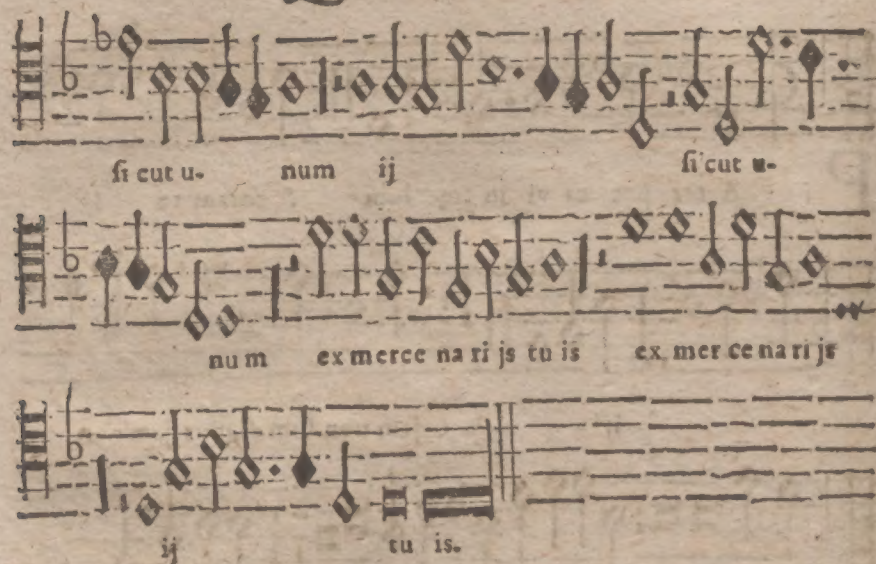 si cut u- num ij si cut u-
num ex merce na ri js tu is ex mer ce na ri js
ij tu is.